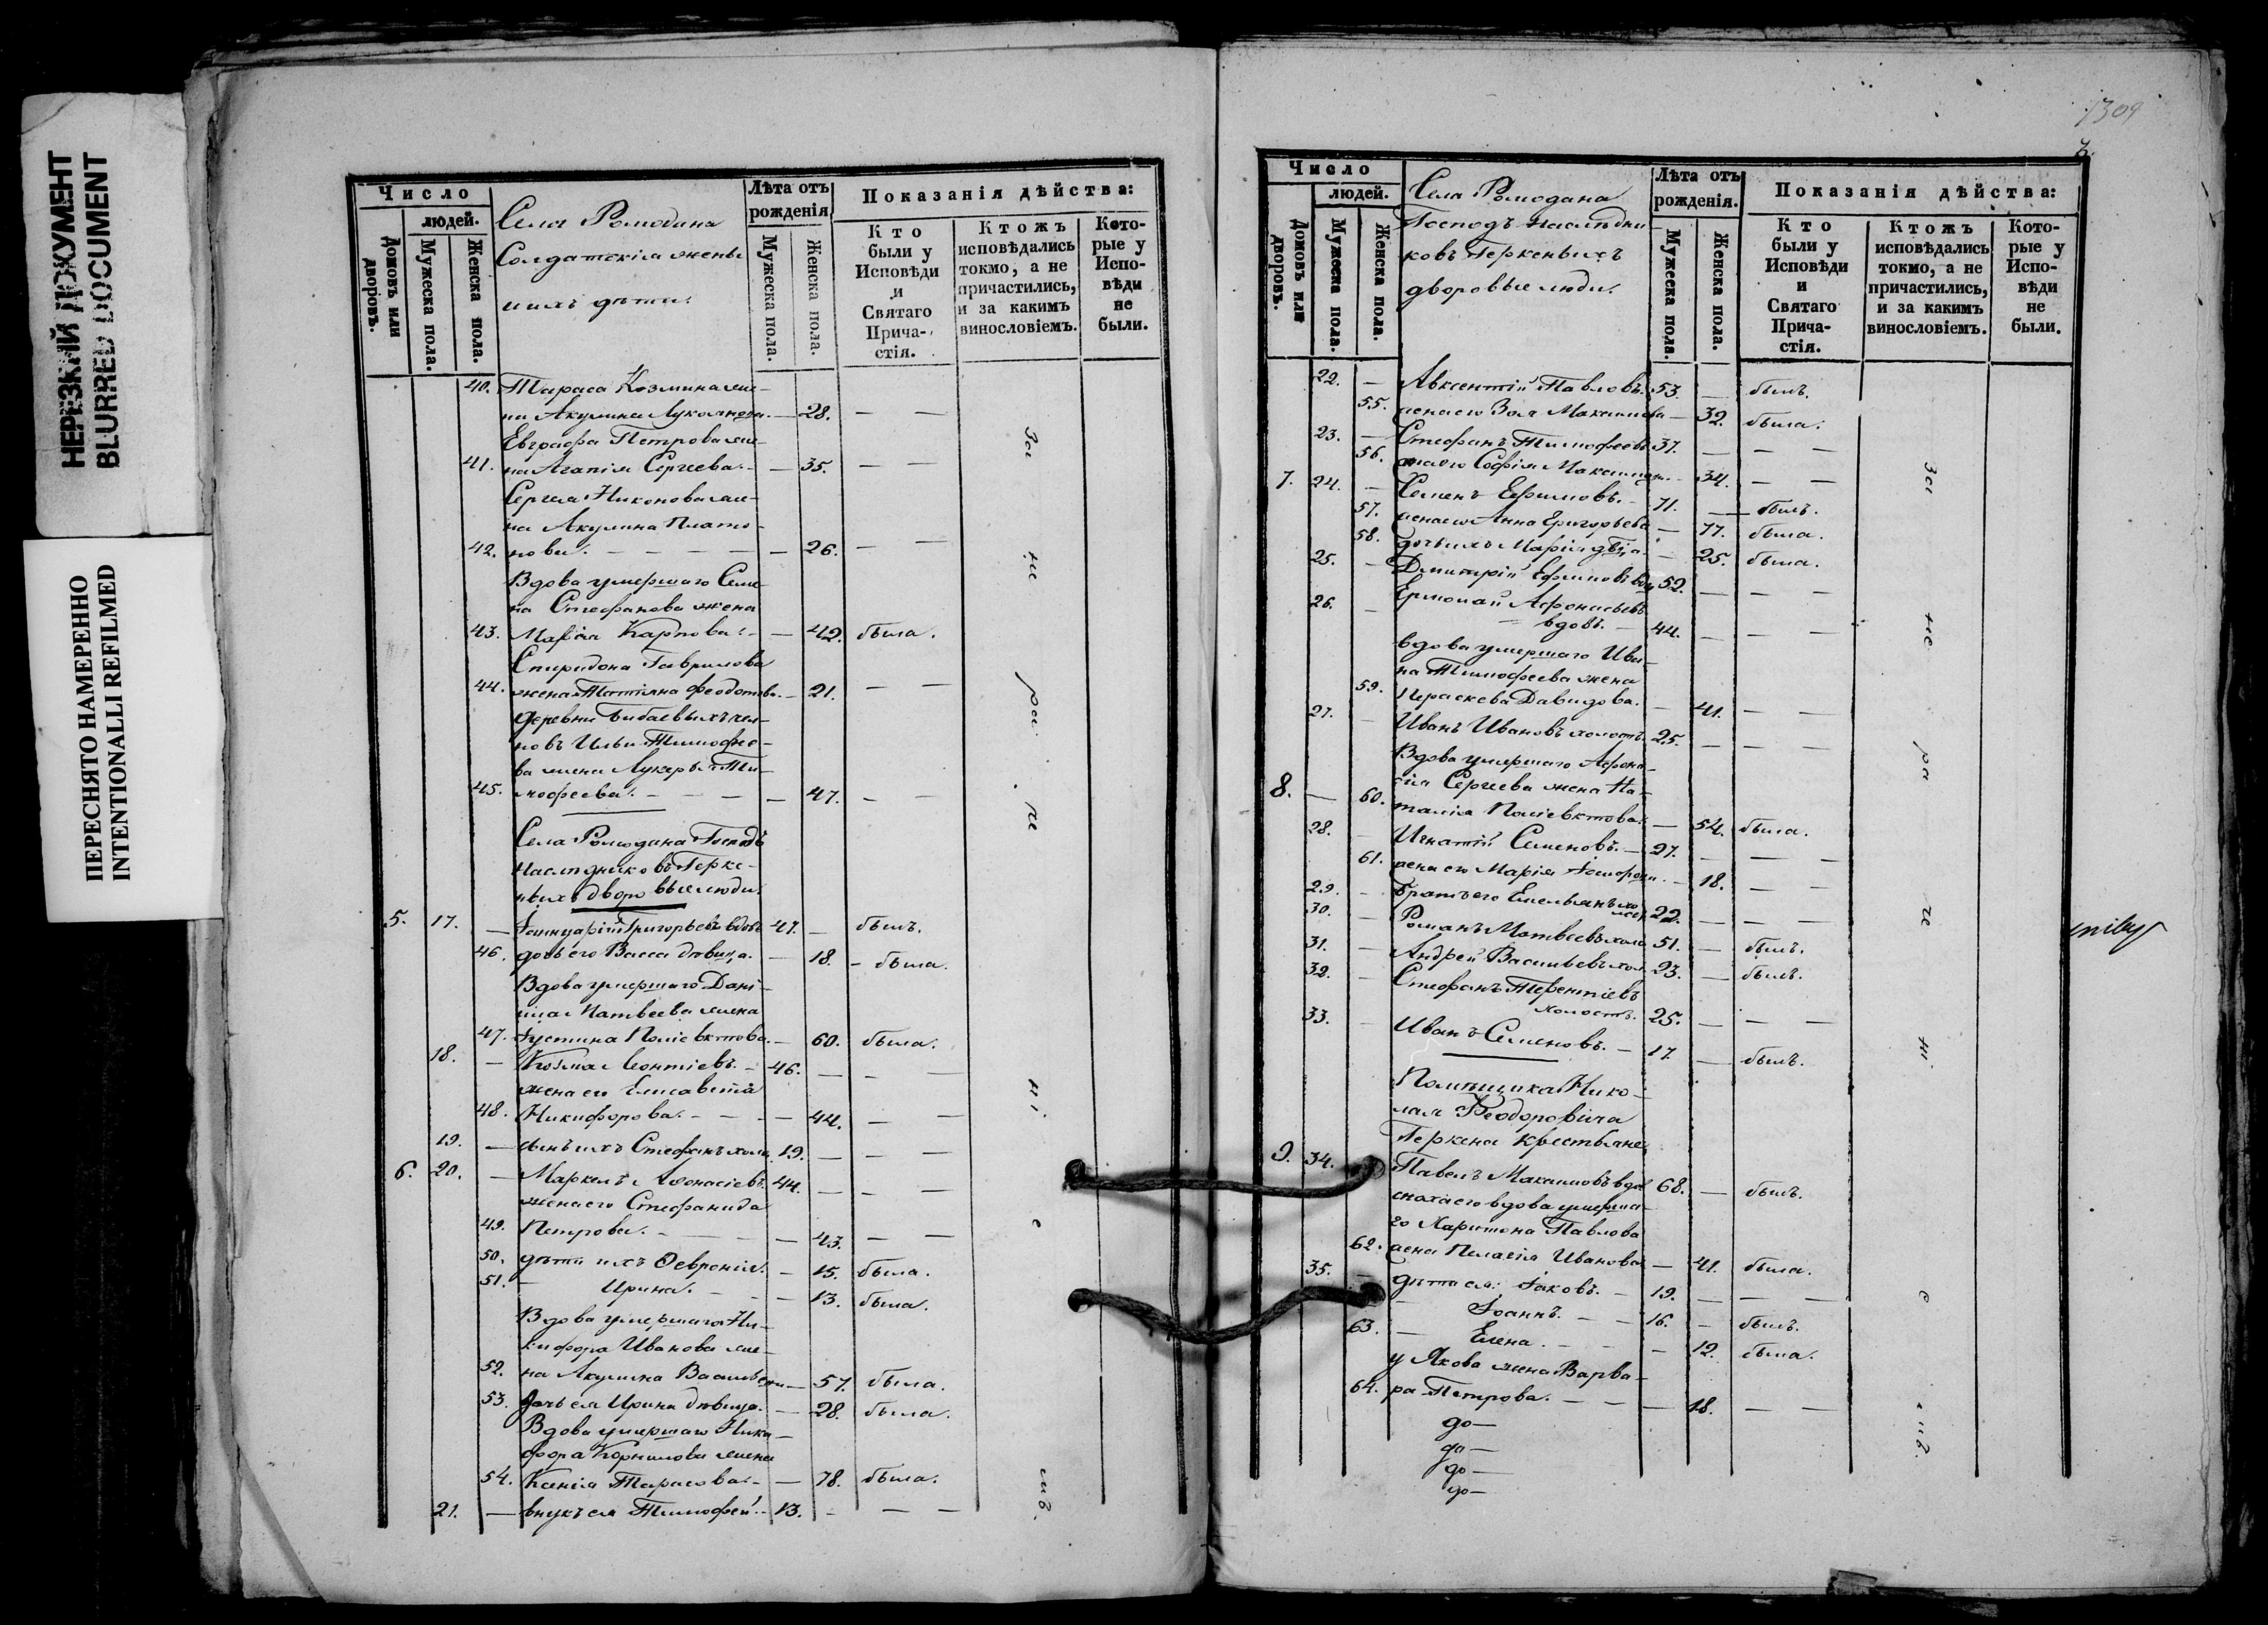 НЕРЕЗКИЙ ДОКУМЕНТ
BLURRED DOCUMENT
ПЕРЕСНЯТО НАМЕРЕННО
INTENTIONALLI REFILMED
Число
людей.
Домовъ или дворовъ.
Мужеска пола.
Женска пола.
Села Ромодана
Солдатскія жены
и ихъ дѣти.
Лѣта отъ рожденія
Мужеска пола.
Женска пола.
Показанія дѣйства:
Кто были у Исповѣди и Святаго Прича-стія.
Ктожъ исповѣдались токмо, а не причастились, и за какимъ винословіемъ.
Кото-рые у Испо-вѣди не были.
40. Тараса Козмина же-
на Акулина Лукьянова. — 28. — —
Евграфа Петрова же-
41. на Агапія Сергеева. — 35. — —
Сергея Никонова же-
на Акулина Плато-
42. нова. — — — — 26. — —
Вдова умершаго Семе-
на Стефанова жена
43. Марія Карпова. — 42. была.
Спиридона Гаврилова
44. жена Татіяна Феодотова. — 21. — —
деревни
новъ Ильи Тимофее-
ва жена Лукерья Ти-
45. мофеева. — — — 47. — —
Села Ромодана Господъ
Наслѣдниковъ Герке-
ныхъ дворовые люди.
5. 17. — Іаннуарій Григорьевъ вдовъ 47. — былъ.
46. дочь его Васса дѣвица. — 18. — была.
Вдова умершаго Дані-
ила Матвеева жена
47. Іустина Поліевктова. — 60. была.
18. — Козма Леонтіевъ. — 46. — — —
жена его Елисавета
48. Никифорова. — — — 44. — —
19. — сынъ ихъ Стефанъ холо. 19. — — —
6. 20. — Маркелъ Афонасіевъ. 44. — — —
жена его Стефанида
49. Петрова. — — — 43. — —
50. дѣти ихъ Февронія. — 15. была.
51. — Ирина. — — — 13. была.
Вдова умершаго Ни-
кифора Иванова же-
52. на Акулина Васильева — 57. была.
53. Дочь ея Ирина дѣвица. — 28. была.
Вдова умершаго Ники-
фора Корнилова жена
54. Ксенія Тарасова. — 78. была.
21. — внукъ ея Тимофей. 13. — — —
За не ра че ні е мъ.
1309
Число
людей.
Домовъ или дворовъ.
Мужеска пола.
Женска пола.
Села Ромодана
Господъ Наслѣдни-
ковъ Геркеныхъ
дворовые люди.
Лѣта отъ рожденія.
Мужеска пола.
Женска пола.
Показанія дѣйства:
Кто были у Исповѣди и Святаго Прича-стія.
Ктожъ исповѣдались токмо, а не причастились, и за какимъ винословіемъ.
Кото-рые у Испо-вѣди не были.
22. — Авксентій Павловъ. 53. — былъ.
55. жена его Зоя Максимова — 32. была.
23. — Стефанъ Тимофеевъ 37. — — —
56. жена его Софія Максимова. — 34. — —
7. 24. — Семенъ Ефимовъ. — 71. — былъ.
57. жена его Анна Григорьева — 77. была.
58. дочь ихъ Марія двца. — 25. была.
25. — Дмитрій Ефимовъ вдов. 52. — — —
26. — Ермолай Афонасьевъ
вдовъ. — 44. — — —
вдова умершаго Ива-
на Тимофеева жена
59. Параскева Давидова. — 41. — —
27. — Иванъ Ивановъ холостъ. 25. — — —
Вдова умершаго Афона-
сія Сергеева жена На-
8. — 60. талія Поліевктова. — 54. была.
28. — Игнатій Семеновъ. — 27. — — —
61. жена его Марія — 18. — —
29. — Братъ его Емельянъ холост. 22. — — —
30. — Романъ Матвеевъ холо. 51. — былъ.
31. — Андрей Васильевъ хол. 23. — былъ.
32. — Стефанъ Терентіевъ
холостъ. 25. — — —
33. — Иванъ Семеновъ. — 17. — былъ.
Помѣщика Нико-
лая Феодоровича
Геркена крестьяне
9. 34. Павелъ Максимовъ вдов. 68. — былъ.
сноха его вдова умерша-
го Харитона Павлова
62. жена Пелагія Иванова — 41. была.
35. — дѣти ея: Іаковъ. — 19. — — —
— Іоаннъ. — — 16. — былъ.
63. — Елена. — — — 12. была.
у Якова жена Варва-
64. ра Петрова. — — — 18. — —
до —
до —
до —
до —
За не ра че ні е мъ.